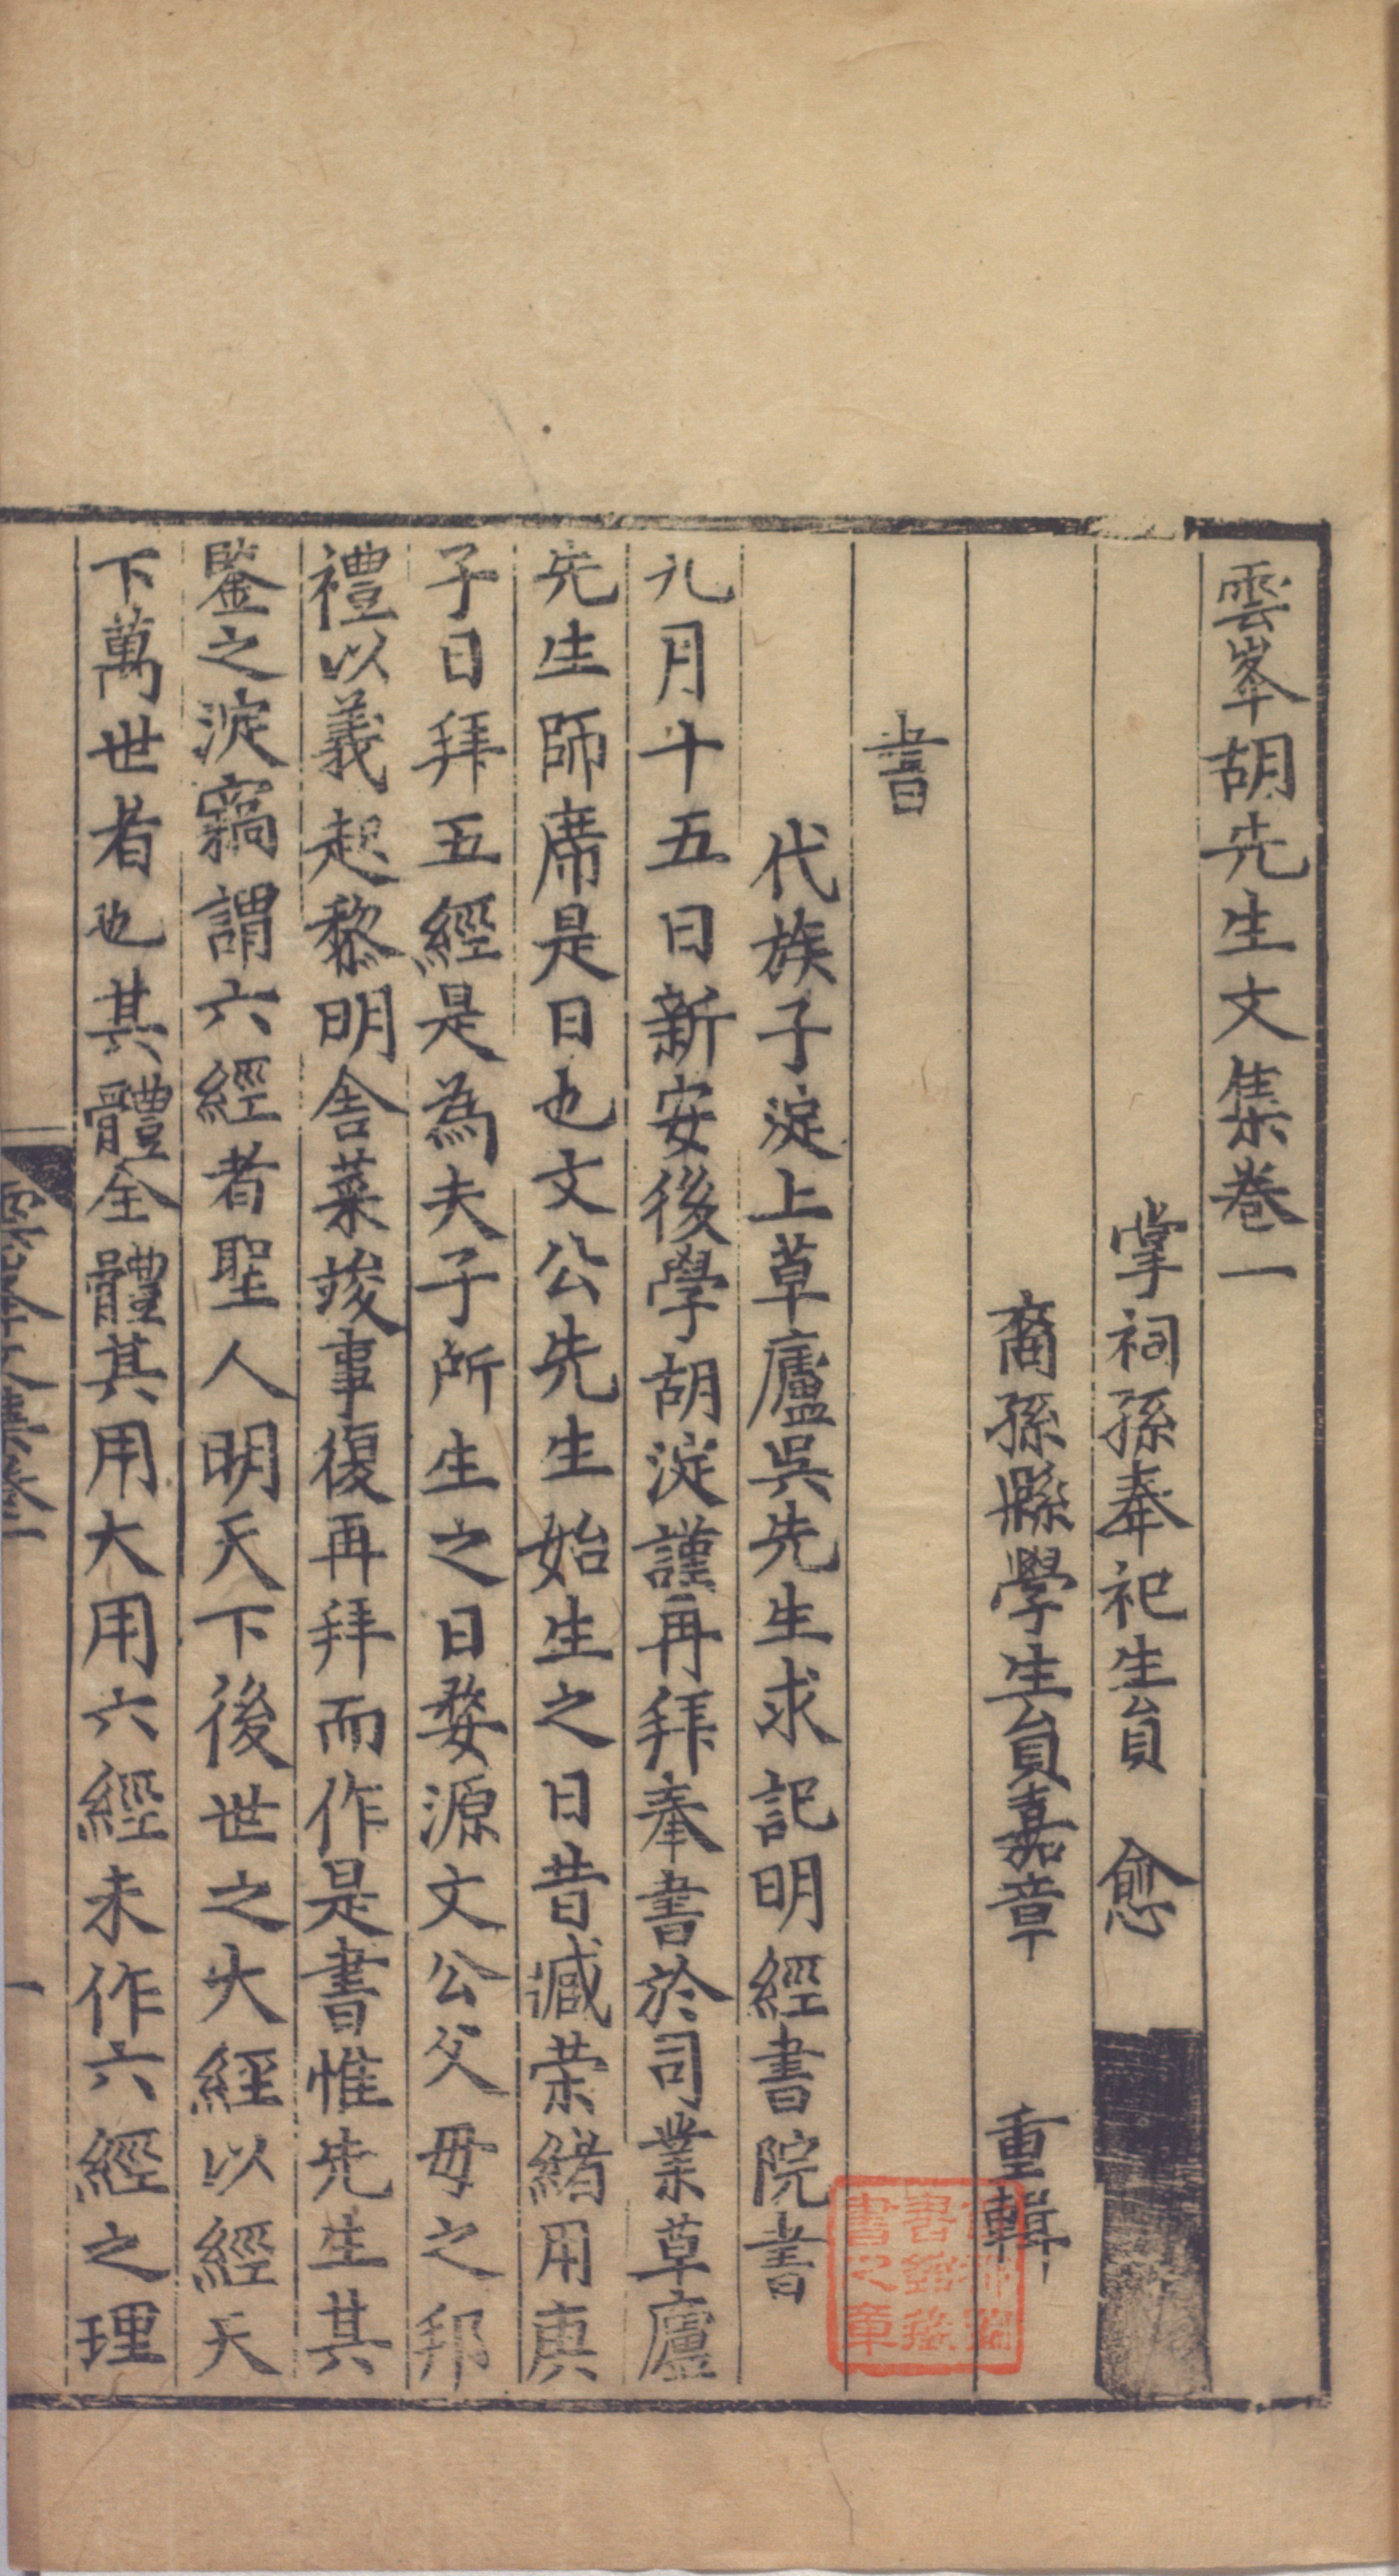 雲峯胡先生文集卷一
掌祠孫奉祀生員　愈
裔孫縣學生員嘉章　重輯
書
代族子淀上草廬吳先生求記明經書院書
九月十五日新安後學胡淀謹再拜奉書於司業草廬
先生師席是日也文公先生始生之日昔臧荣緒用庚
子日拜五經是為夫子所生之日婺源文公父母之邦
禮以義起黎明舍菜竣事復再拜而作是書惟先生其
鑒之淀竊謂六經者聖人明天下後世之大經以經天
下萬世者也其體全體其用大用六經未作六經之理
雲峯文集卷一
一
書之章